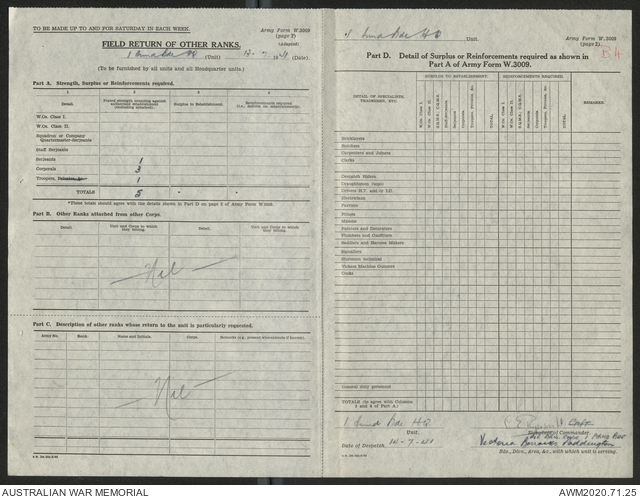 TO BE MADE UP TO AND FOR SATURDAY IN EACH WEEK.
Army Form W.3009
(page 1)
(Adapted)
FIELD RETURN OF OTHER RANKS.
(Unit) (Date)
(To be furnished by all units and all Headquarter units.)
Part A. Strength, Surplus or Reinforcements required.
1 2 3 4
Detail. Posted strength counting against authorised establishment (excluding attached). Surplus to Establishment. Reinforcements required (i.e., Deficits on establishment).
W.Os. Class I.
W.Os. Class II.
Squadron or Company Quartermaster-Serjeants
Staff Serjeants
Serjeants 1
Corporals 3
Troopers, 1
TOTALS 5 * *
*These totals should agree with the details shown in Part D on page 2 of Army Form W.3009.
Part B. Other Ranks attached from other Corps.
Detail. Unit and Corps to which they belong. Detail. Unit and Corps to which they belong.
Nil
Part C. Description of other ranks whose return to the unit is particularly requested.
Army No. Rank. Name and Initials. Corps. Remarks (e.g., present whereabouts if known).
Nil
1 HQ Unit.
Army Form W.3009
(page 2)
B4
Part D. Detail of Surplus or Reinforcements required as shown in
Part A of Army Form W.3009.
SURPLUS TO ESTABLISHMENT. REINFORCEMENTS REQUIRED.
DETAIL OF SPECIALISTS, TRADESMEN, ETC.
W.Os. Class I. W.Os. Class II. Serjeants Corporals TOTAL. W.Os. Class I. W.Os. Class II. Serjeants Corporals TOTAL. REMARKS.
Bricklayers
Butchers
Carpenters and Joiners
Clerks
Despatch Riders
Draughtsmen
Drivers
Electricians
Farriers
Fitters
Miners
Painters and Decorators
Plumbers and Gasfitters
Saddlers and Harness Makers
Signallers
Storemen technical
Vickers Machine Gunners
Cooks
General duty personnel
TOTALS (to agree with Columns 3 and 4 of Part A)
Bde HQ
Unit.
Capt
Signature of Commander
Date of Despatch.
Victoria Barracks Paddington
Bde., Divn., Area, &c., with which unit is serving.
AUSTRALIAN WAR MEMORIAL
AWM2020.71.25